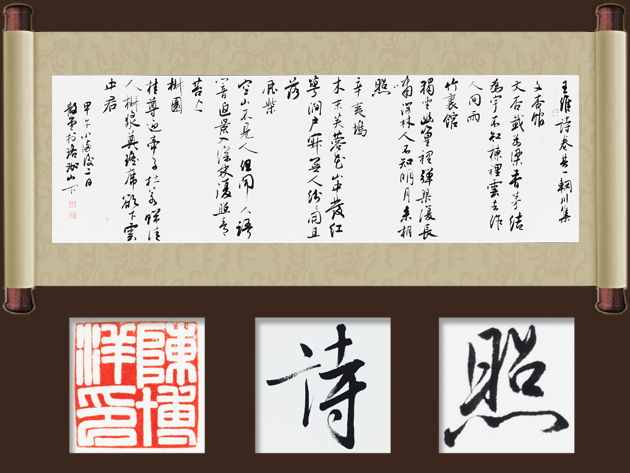 王維詩卷其一輞川集
文杏館
文杏裁為梁香茅結
為宇不知棟裡雲去作
人間雨
竹裏館
獨坐幽篁裡彈琴復長
嘯深林人不知明月來相
照
辛夷塢
木末芙蓉花山中發紅
萼澗戶寂無人紛紛開且
落
鹿柴
空山不見人但聞人語
響返景入深林復照青
苔上
椒園
桂尊迎帝子杜若贈佳
人椒漿奠瑤席欲下雲
中君
甲午小滿後二日
於珞珈山下
陳博
洋印
詩
照